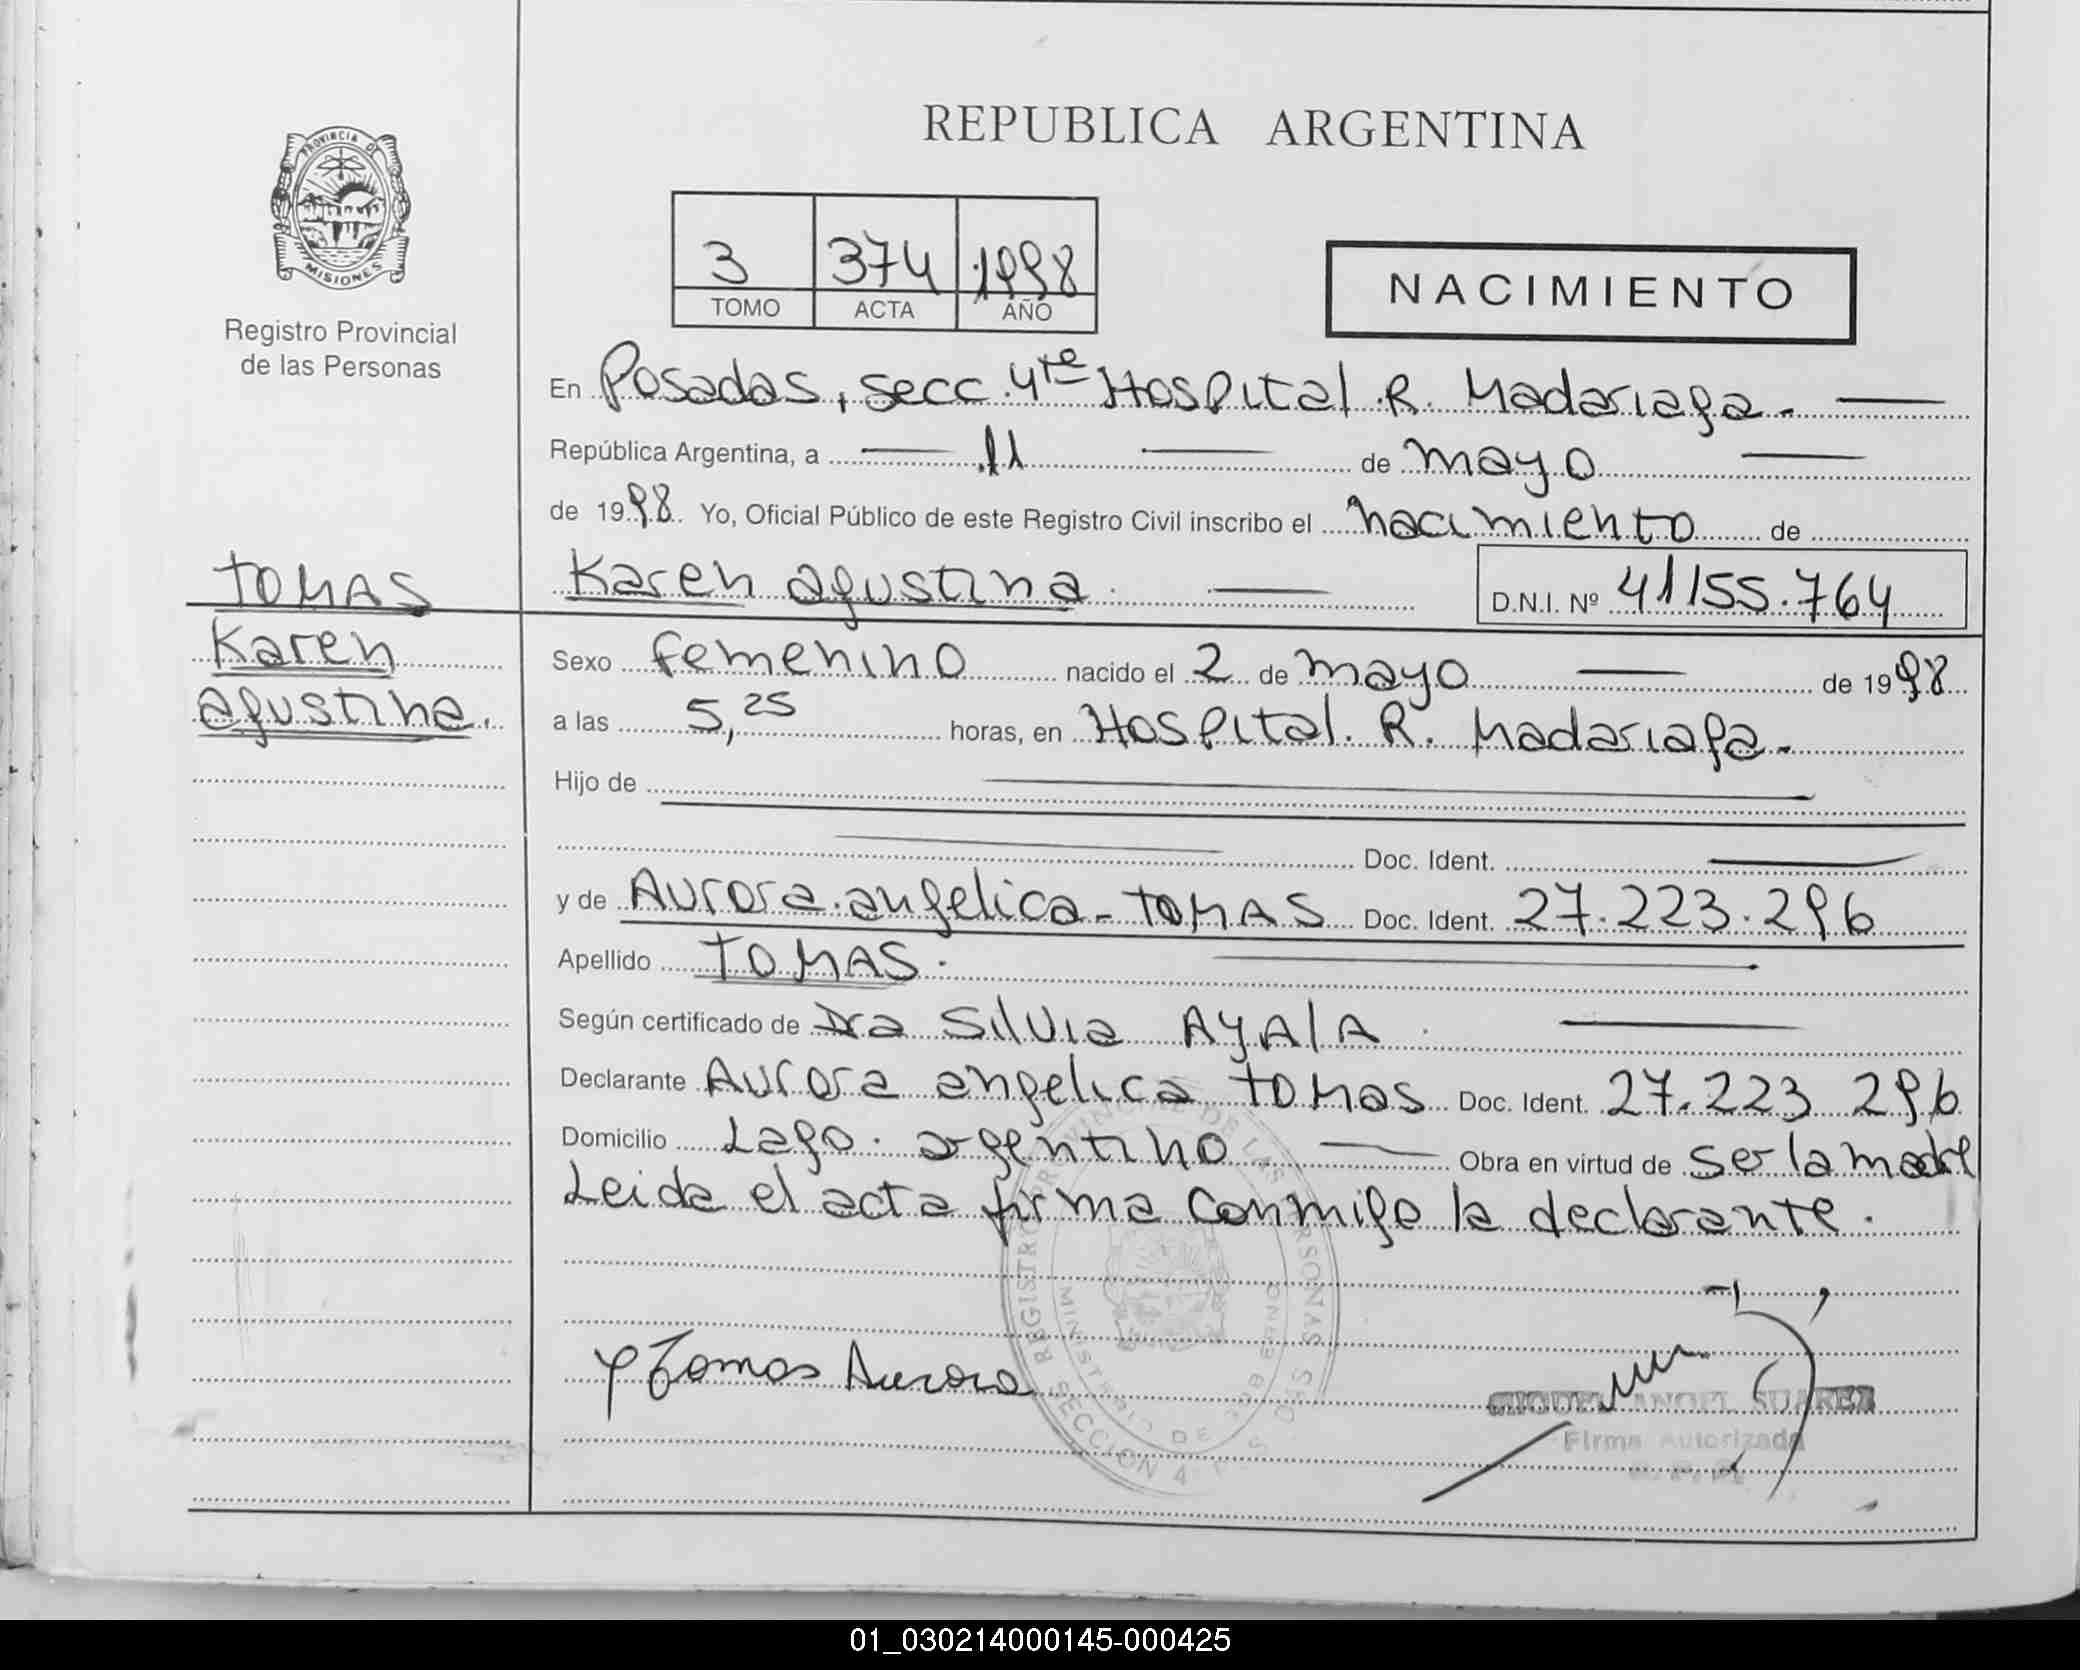 REPUBLICA ARGENTINA
PROVINCIA DE
MISIONES
Registro Provincial
de las Personas
3 374 1998
TOMO ACTA AÑO
NACIMIENTO
En Posadas, secc. 4te Hospital R. Madariaga. —
República Argentina, a — 11 — de mayo —
de 1998. Yo, Oficial Público de este Registro Civil inscribo el nacimiento de
TOMAS
Karen
agustina.
Karen agustina. — D.N.I. Nº 41155.764
Sexo femenino nacido el 2 de mayo — de 1998
a las 5,25 horas, en Hospital. R. Madariaga.
Hijo de —
— Doc. Ident. —
y de Aurora angelica - TOMAS Doc. Ident. 27.223.296
Apellido TOMAS. —
Según certificado de Dra Silvia AyAlA. —
Declarante Aurora angelica tomas Doc. Ident. 27.223 296
Domicilio Lago. argentino — Obra en virtud de ser la madre
Leida el acta firma conmigo la declarante.
REGISTRO PROVINCIAL DE LAS PERSONAS
MINISTERIO DE GOBIERNO
SECCION 4
Tomas Aurora
MIGUEL ANGEL SUAREZ
Firma Autorizada
01_030214000145-000425